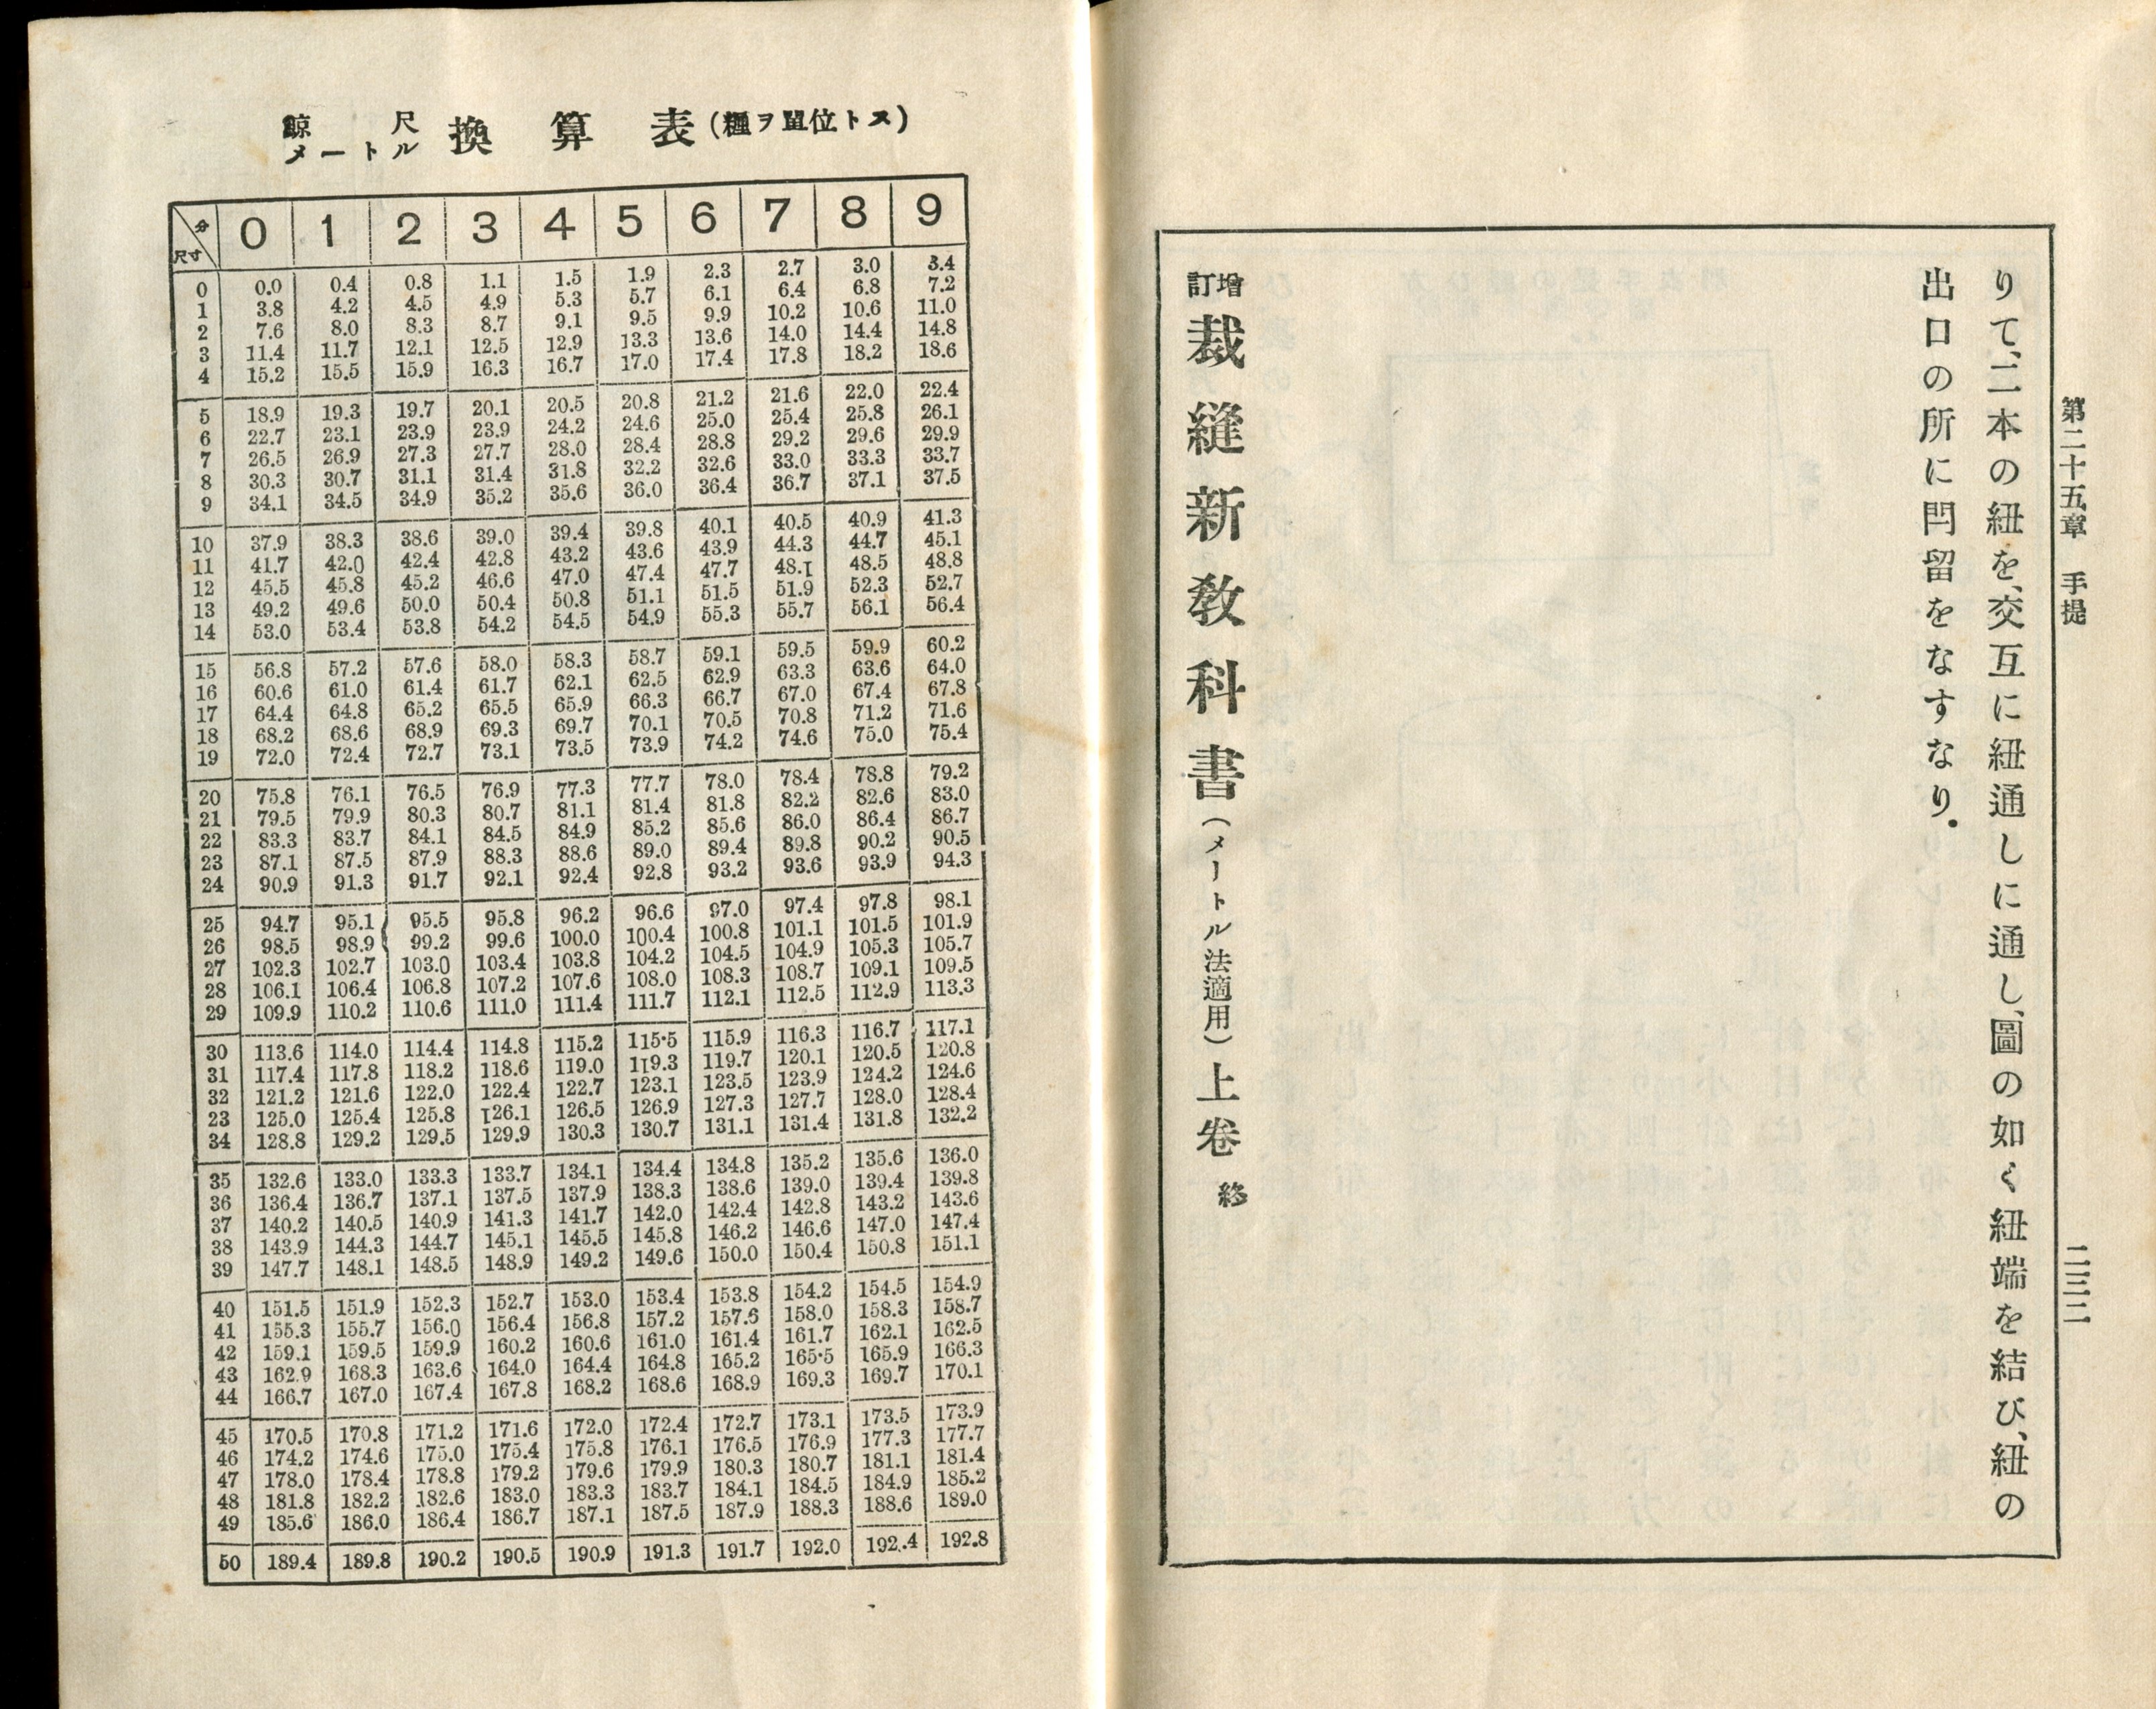 第二十五章　手提
二三二
りて、二本の紐を、交互に紐通しに通し、圖の如く紐端を結び、紐の
出口の所に閂留をなすなり。
增訂裁縫新敎科書（メートル法適用）上卷　終
鯨尺メートル換算表(糎ヲ單位トス)
分 尺寸 0 1 2 3 4 5 6 7 8 9
0 0.0 0.4 0.8 1.1 1.5 1.9 2.3 2.7 3.0 3.4
1 3.8 4.2 4.5 4.9 5.3 5.7 6.1 6.4 6.8 7.2
2 7.6 8.0 8.3 8.7 9.1 9.5 9.9 10.2 10.6 11.0
3 11.4 11.7 12.1 12.5 12.9 13.3 13.6 14.0 14.4 14.8
4 15.2 15.5 15.9 16.3 16.7 17.0 17.4 17.8 18.2 18.6
5 18.9 19.3 19.7 20.1 20.5 20.8 21.2 21.6 22.0 22.4
6 22.7 23.1 23.9 23.9 24.2 24.6 25.0 25.4 25.8 26.1
7 26.5 26.9 27.3 27.7 28.0 28.4 28.8 29.2 29.6 29.9
8 30.3 30.7 31.1 31.4 31.8 32.2 32.6 33.0 33.3 33.7
9 34.1 34.5 34.9 35.2 35.6 36.0 36.4 36.7 37.1 37.5
10 37.9 38.3 38.6 39.0 39.4 39.8 40.1 40.5 40.9 41.3
11 41.7 42.0 42.4 42.8 43.2 43.6 43.9 44.3 44.7 45.1
12 45.5 45.8 45.2 46.6 47.0 47.4 47.7 48.1 48.5 48.8
13 49.2 49.6 50.0 50.4 50.8 51.1 51.5 51.9 52.3 52.7
14 53.0 53.4 53.8 54.2 54.5 54.9 55.3 55.7 56.1 56.4
15 56.8 57.2 57.6 58.0 58.3 58.7 59.1 59.5 59.9 60.2
16 60.6 61.0 61.4 61.7 62.1 62.5 62.9 63.3 63.6 64.0
17 64.4 64.8 65.2 65.5 65.9 66.3 66.7 67.0 67.4 67.8
18 68.2 68.6 68.9 69.3 69.7 70.1 70.5 70.8 71.2 71.6
19 72.0 72.4 72.7 73.1 73.5 73.9 74.2 74.6 75.0 75.4
20 75.8 76.1 76.5 76.9 77.3 77.7 78.0 78.4 78.8 79.2
21 79.5 79.9 80.3 80.7 81.1 81.4 81.8 82.2 82.6 83.0
22 83.3 83.7 84.1 84.5 84.9 85.2 85.6 86.0 86.4 86.7
23 87.1 87.5 87.9 88.3 88.6 89.0 89.4 89.8 90.2 90.5
24 90.9 91.3 91.7 92.1 92.4 92.8 93.2 93.6 93.9 94.3
25 94.7 95.1 95.5 95.8 96.2 96.6 97.0 97.4 97.8 98.1
26 98.5 98.9 99.2 99.6 100.0 100.4 100.8 101.1 101.5 101.9
27 102.3 102.7 103.0 103.4 103.8 104.2 104.5 104.9 105.3 105.7
28 106.1 106.4 106.8 107.2 107.6 108.0 108.3 108.7 109.1 109.5
29 109.9 110.2 110.6 111.0 111.4 111.7 112.1 112.5 112.9 113.3
30 113.6 114.0 114.4 114.8 115.2 115.5 115.9 116.3 116.7 117.1
31 117.4 117.8 118.2 118.6 119.0 119.3 119.7 120.1 120.5 120.8
32 121.2 121.6 122.0 122.4 122.7 123.1 123.5 123.9 124.2 124.6
23 125.0 125.4 125.8 126.1 126.5 126.9 127.3 127.7 128.0 128.4
34 128.8 129.2 129.5 129.9 130.3 130.7 131.1 131.4 131.8 132.2
35 132.6 133.0 133.3 133.7 134.1 134.4 134.8 135.2 135.6 136.0
36 136.4 136.7 137.1 137.5 137.9 138.3 138.6 139.0 139.4 139.8
37 140.2 140.5 140.9 141.3 141.7 142.0 142.4 142.8 143.2 143.6
38 143.9 144.3 144.7 145.1 145.5 145.8 146.2 146.6 147.0 147.4
39 147.7 148.1 148.5 148.9 149.2 149.6 150.0 150.4 150.8 151.1
40 151.5 151.9 152.3 152.7 153.0 153.4 153.8 154.2 154.5 154.9
41 155.3 155.7 156.0 156.4 156.8 157.2 157.6 158.0 158.3 158.7
42 159.1 159.5 159.9 160.2 160.6 161.0 161.4 161.7 162.1 162.5
43 162.9 168.3 163.6 164.0 164.4 164.8 165.2 165.5 165.9 166.3
44 166.7 167.0 167.4 167.8 168.2 168.6 168.9 169.3 169.7 170.1
45 170.5 170.8 171.2 171.6 172.0 172.4 172.7 173.1 173.5 173.9
46 174.2 174.6 175.0 175.4 175.8 176.1 176.5 176.9 177.3 177.7
47 178.0 178.4 178.8 179.2 179.6 179.9 180.3 180.7 181.1 181.4
48 181.8 182.2 182.6 183.0 183.3 183.7 184.1 184.5 184.9 185.2
49 185.6 186.0 186.4 186.7 187.1 187.5 187.9 188.3 188.6 189.0
50 189.4 189.8 190.2 190.5 190.9 191.3 191.7 192.0 192.4 192.8